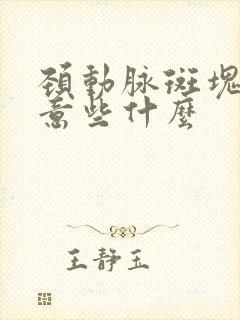 頚動脉斑塊
意些什麼
王靜玉